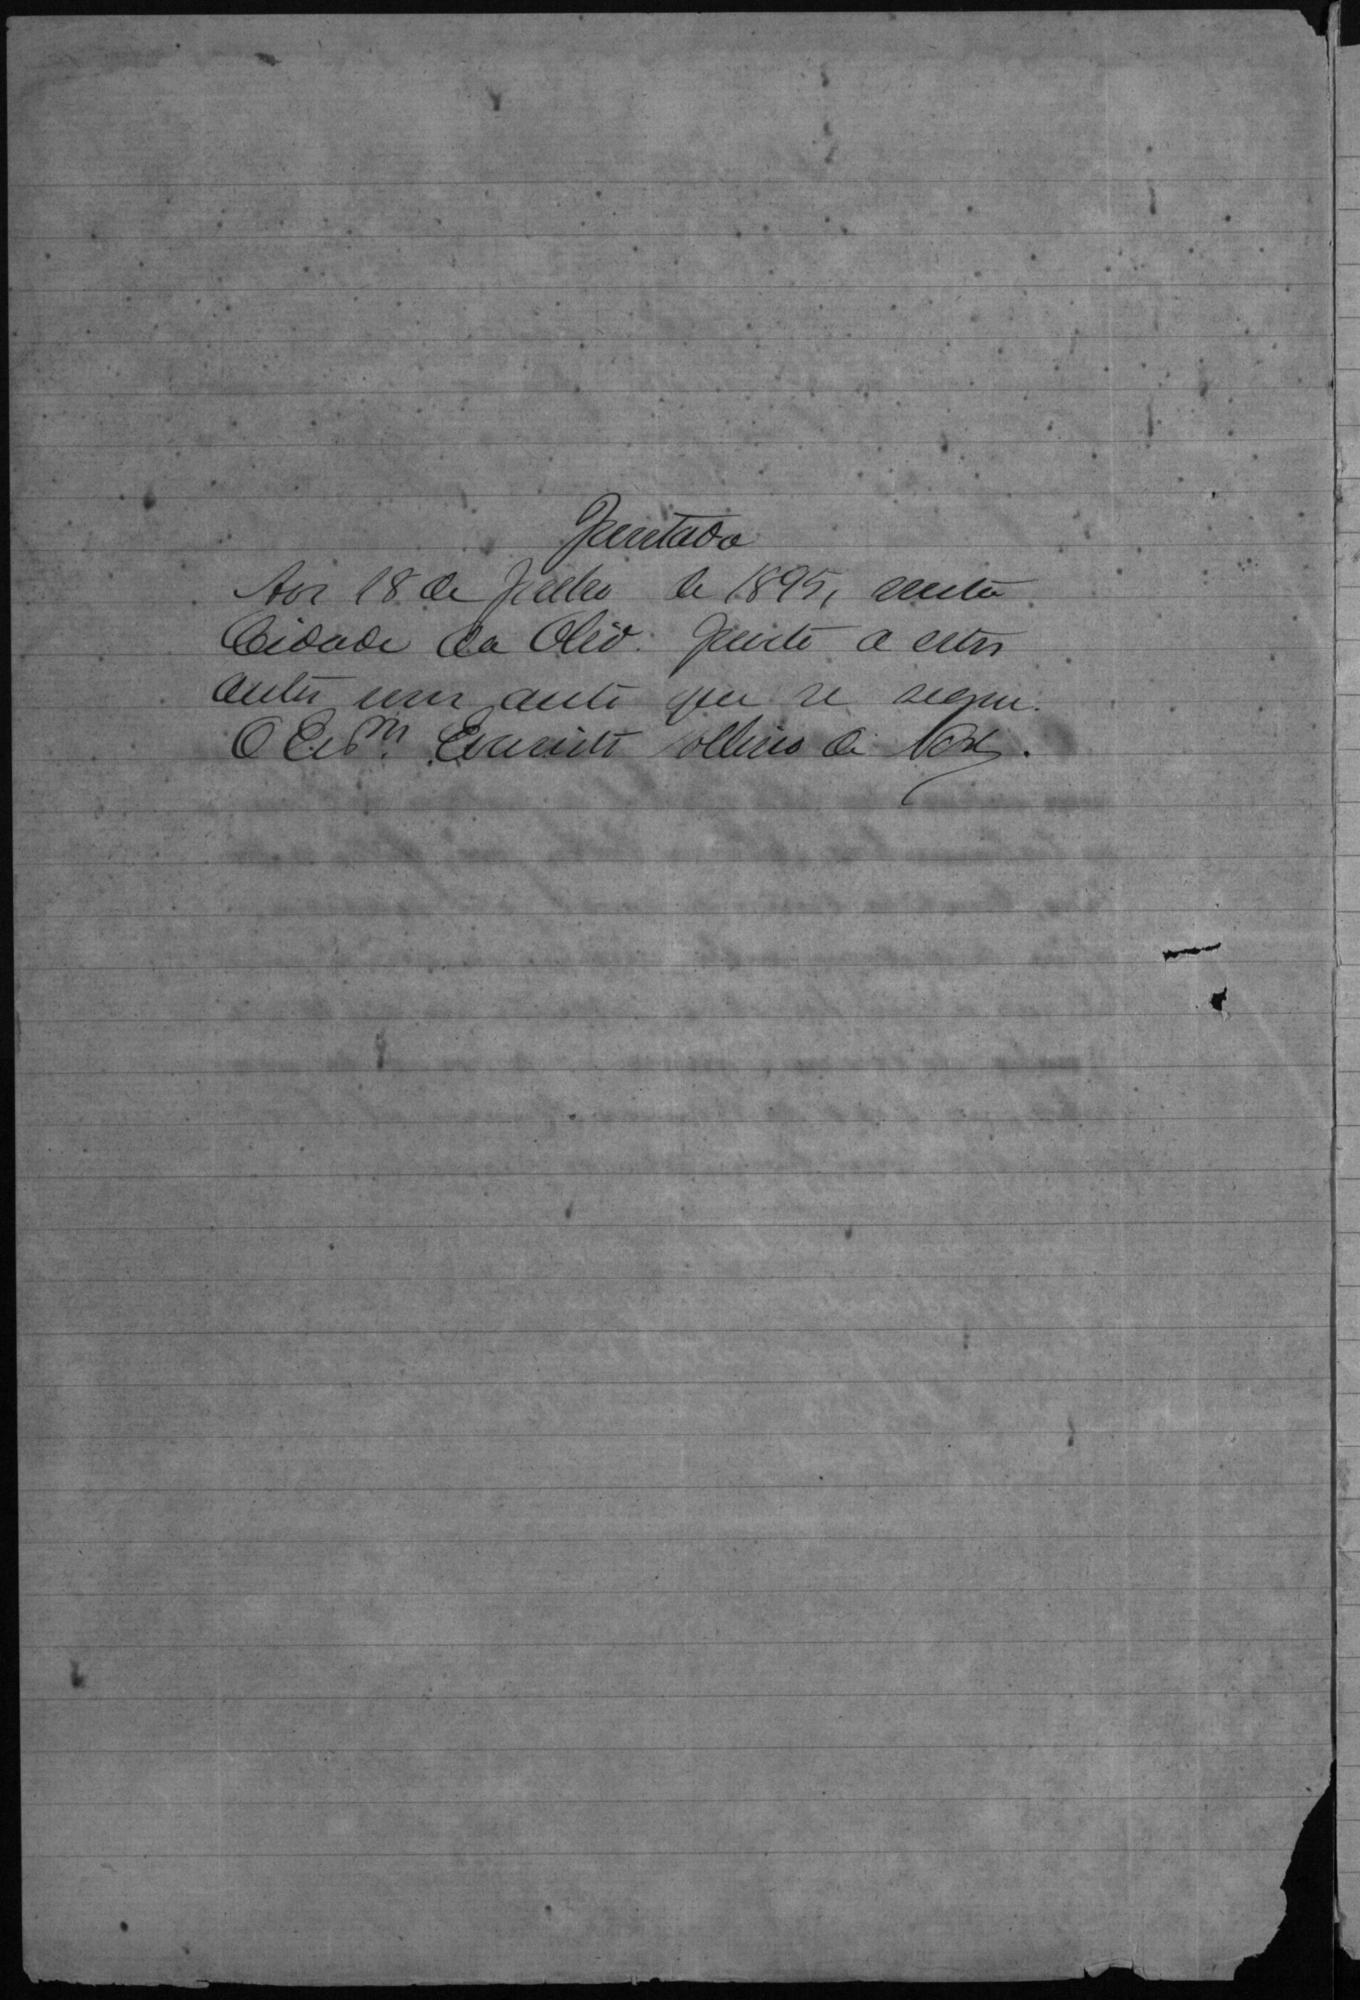 Juntada
Aos 18 de Julho de 1895, nesta
Cidade da Oliv. junto a estes
autos um auto que se segue.
O Escm. Evaristo de